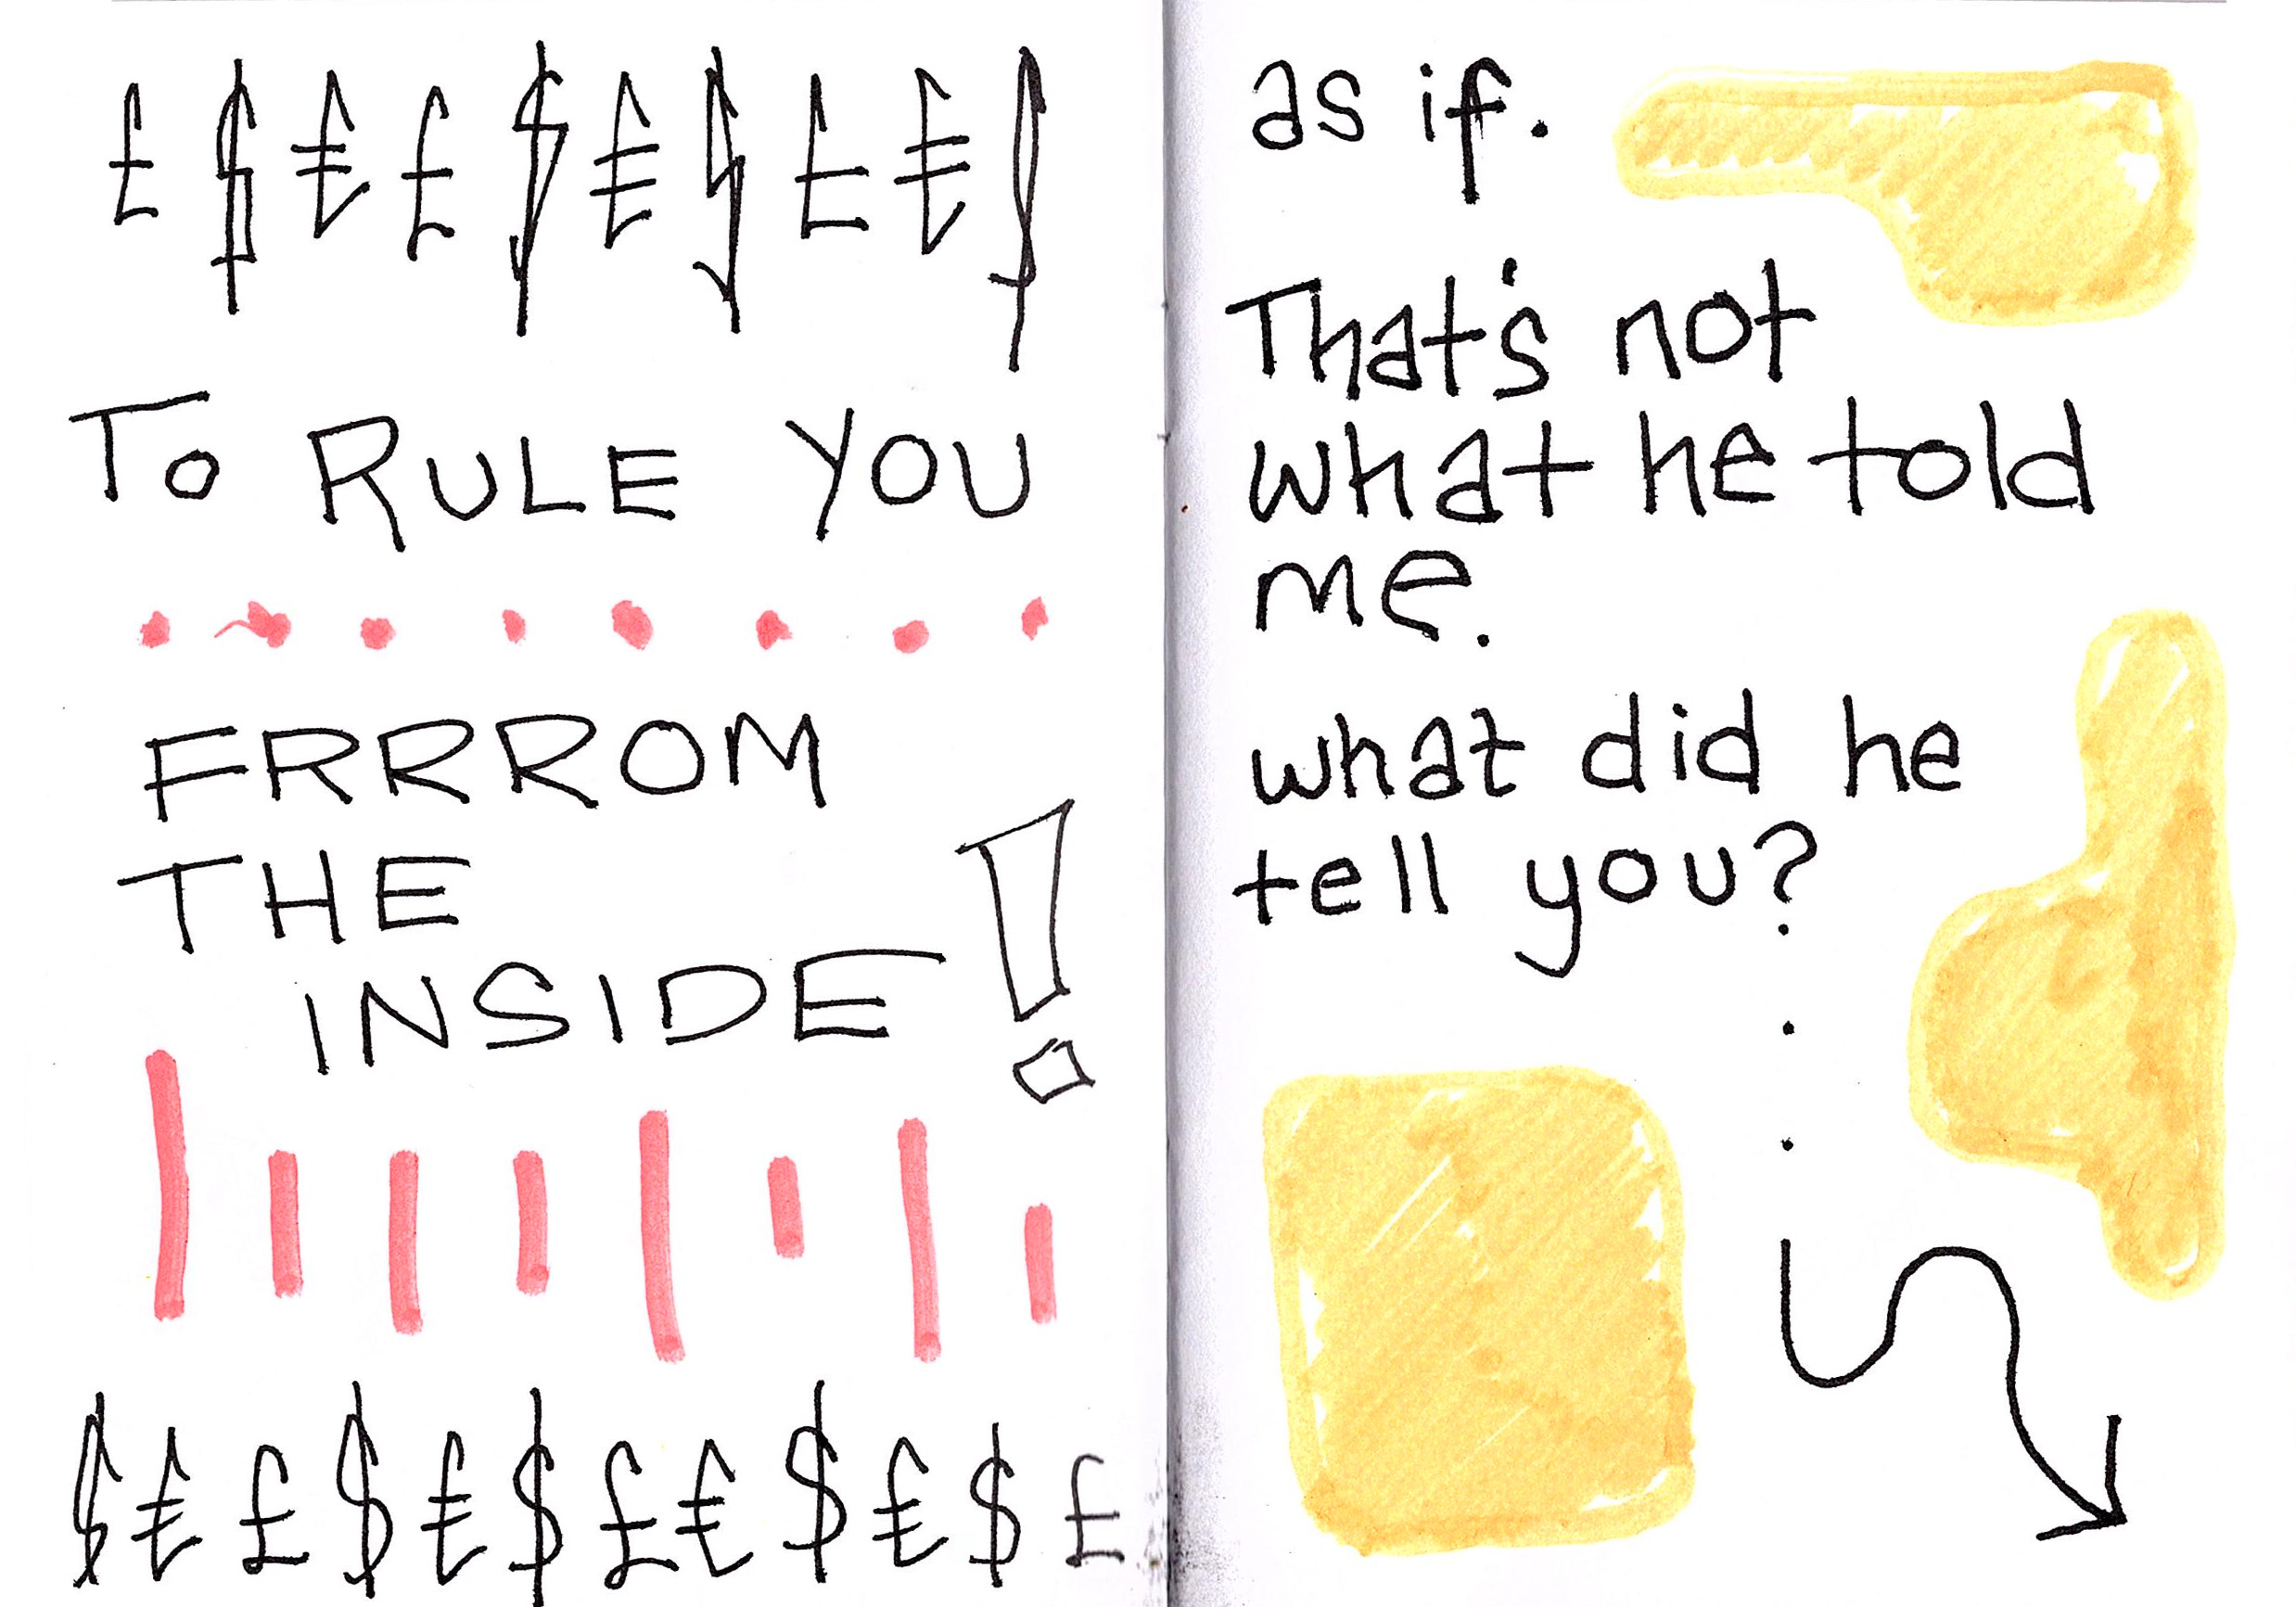 £ $ ₤ £ $ ₤ $ £ ₤ $
To RULE YOU
FRRROM
THE
INSIDE!
$ ₤ £ $ ₤ $ £ ₤ $ ₤ $ £
as if.
That's not
what he told
me.
what did he
tell you?